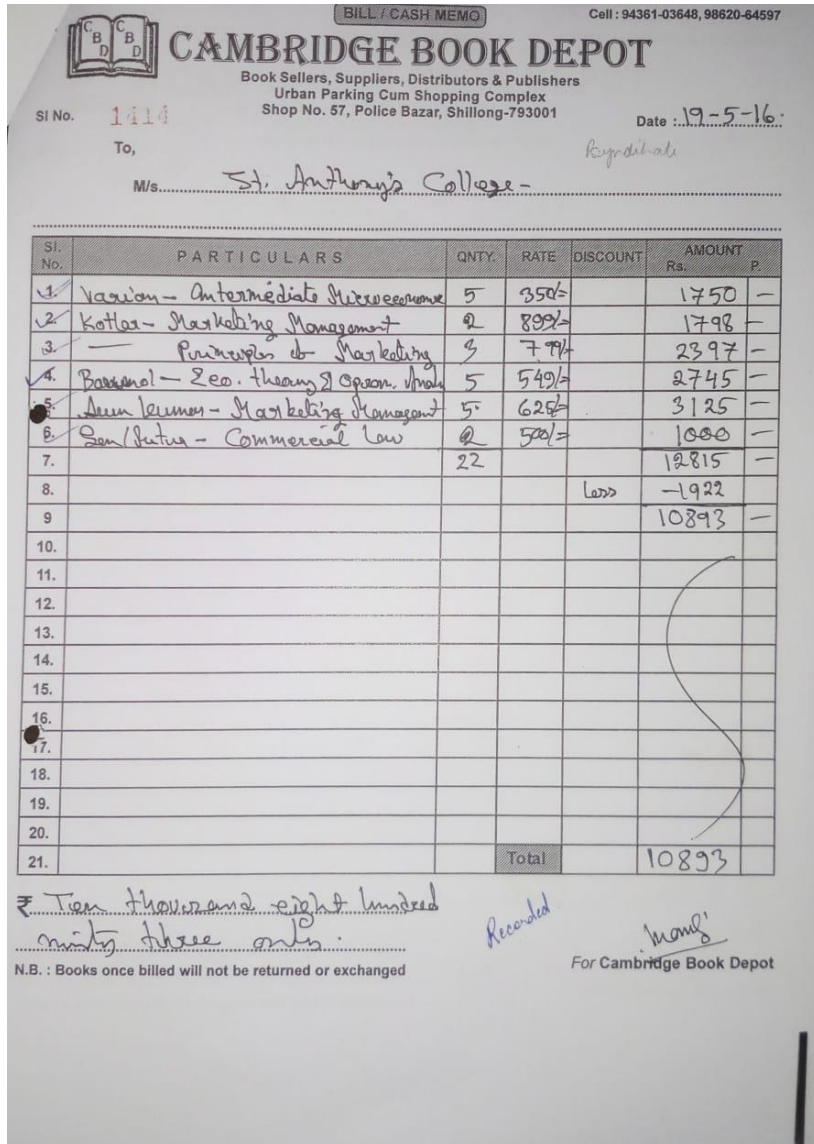 BILL / CASH MEMO
Cell : 94361-03648, 98620-64597
C B D C B D
CAMBRIDGE BOOK DEPOT
Book Sellers, Suppliers, Distributors & Publishers
Urban Parking Cum Shopping Complex
Shop No. 57, Police Bazar, Shillong-793001
Sl No. 1414
Date : 19-5-16.
To,
M/s. St. Anthony's College -
Sl. No. PARTICULARS QNTY. RATE DISCOUNT AMOUNT Rs. P.
1. Varian - Intermediate Microeconomic 5 350/= 1750 -
2. Kotler - Marketing Management 2 899/- 1798 -
3. — Principles of Marketing 3 799/- 2397 -
4. - Eco. theory & Opran. Anal 5 549/= 2745 -
5. Arun Kumar - Marketing Managemt 5 625/= 3125 -
6. Sen/ - Commercial Law 2 500/= 1000 -
7. 22 12815 -
8. Less -1922
9 10893 -
10.
11.
12.
13.
14.
15.
16.
17.
18.
19.
20.
21. Total 10893
₹ Ten thousand eight hundred
ninty three only.
Recorded
N.B. : Books once billed will not be returned or exchanged
For Cambridge Book Depot